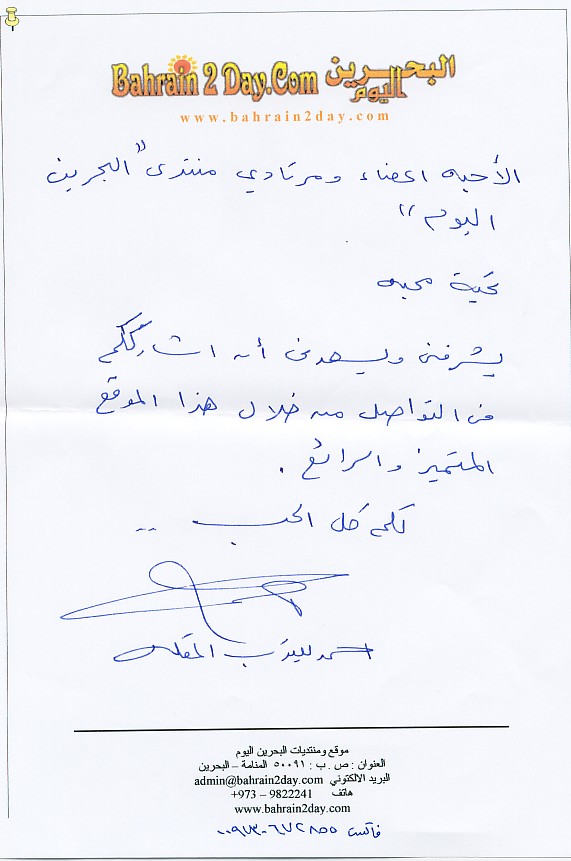 Bahrain 2 Day.Com البحرين اليوم
www.bahrain2day.com
الأحبه اعضاء ومرتادي منتدى "البحرين
اليوم"
تحية محبه
يشرفني ويسعدني أن اشارككم
في التواصل من خلال هذا الموقع
المتميز والرائع .
لكم كل الحب ..
احمد
موقع ومنتديات البحرين اليوم
العنوان : ص . ب : ٥٠٠٩١ المنامة – البحرين
البريد الالكتوني admin@bahrain2day.com
هاتف 9822241 – 973+
www.bahrain2day.com
فاكس ٠٠٩٧٣-٦٧٢٨٥٥